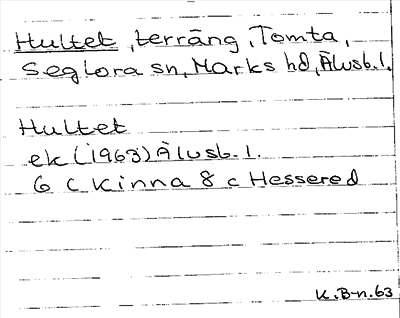 Hultet, terräng, Tomta,
Seglora sn, Marks hd, Älvsb. l.
Hultet
ek (1963) Älvsb. l.
6 c Kinna 8 c Hessered
K.B-n.63